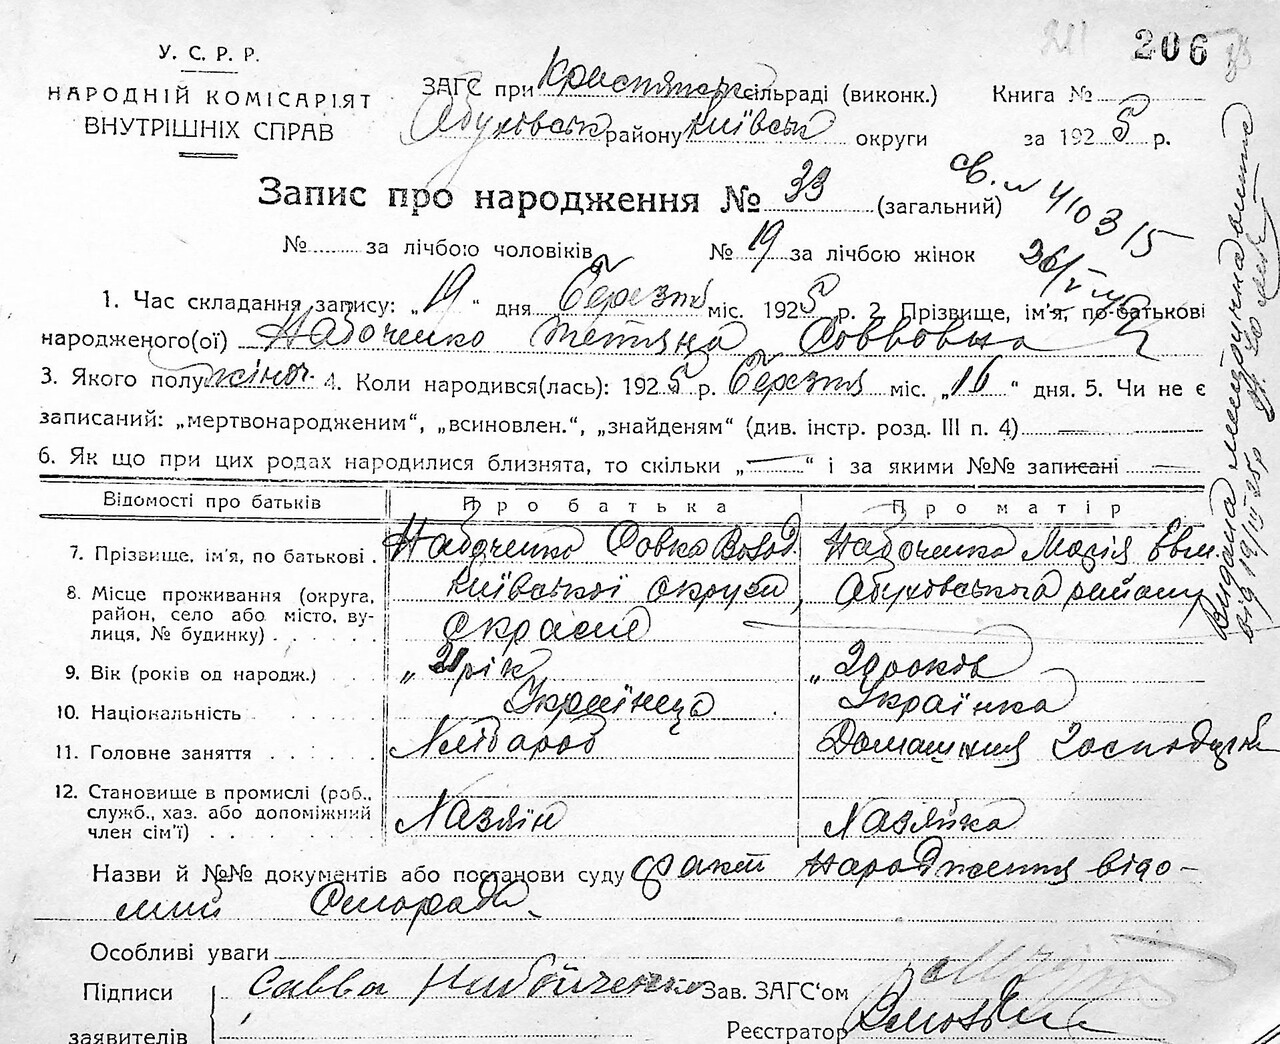 206
У. С. Р. Р.
НАРОДНІЙ КОМІСАРІЯТ
ВНУТРІШНІХ СПРАВ
ЗАГС при сільраді (виконк.) Книга №
Абуховськ району Київськ округи за 1925 р.
Запис про народження № 33 (загальний)
св. № 410315
№ за лічбою чоловіків № 19 за лічбою жінок
1. Час складання запису: „19“ дня Березня міс. 1925 р. 2. Прізвище, ім'я, по-батькові
народженого(ої) Набоченко Тетяна Сововна
3. Якого полу жіноч. 4. Коли народився(лась): 1925 р. Березня міс. „16“ дня. 5. Чи не є
записаний: „мертвонародженим“, „всиновлен.“, „знайденям“ (див. інстр. розд. III п. 4)
6. Як що при цих родах народилися близнята, то скільки „—“ і за якими №№ записані —
Відомості про батьків Про батька Про матір
7. Прізвище, ім'я, по батькові . Набоченко Совка Волод. Набоченко Марія Евм.
8. Місце проживання (округа, район, село або місто, вулиця, № будинку) . . . . . Київської округи, Абуховського району
9. Вік (років од народж.) . . . „ 21 рік „ 20 років
10. Національність . . . . . Українець Українка
11. Головне заняття . . . . . Хлібороб Домашння Господарка
12. Становище в промислі (роб., служб., хаз. або допоміжний член сім'ї) . . . . . . . Хазяїн Хазяйка
Назви й №№ документів або постанови суду факт народження відо-
мий Сільраді.
Особливі уваги
Підписи Савва Зав. ЗАГС'ом
заявителів Реєстратор
Видана метрична виписка
від 19/III 25р